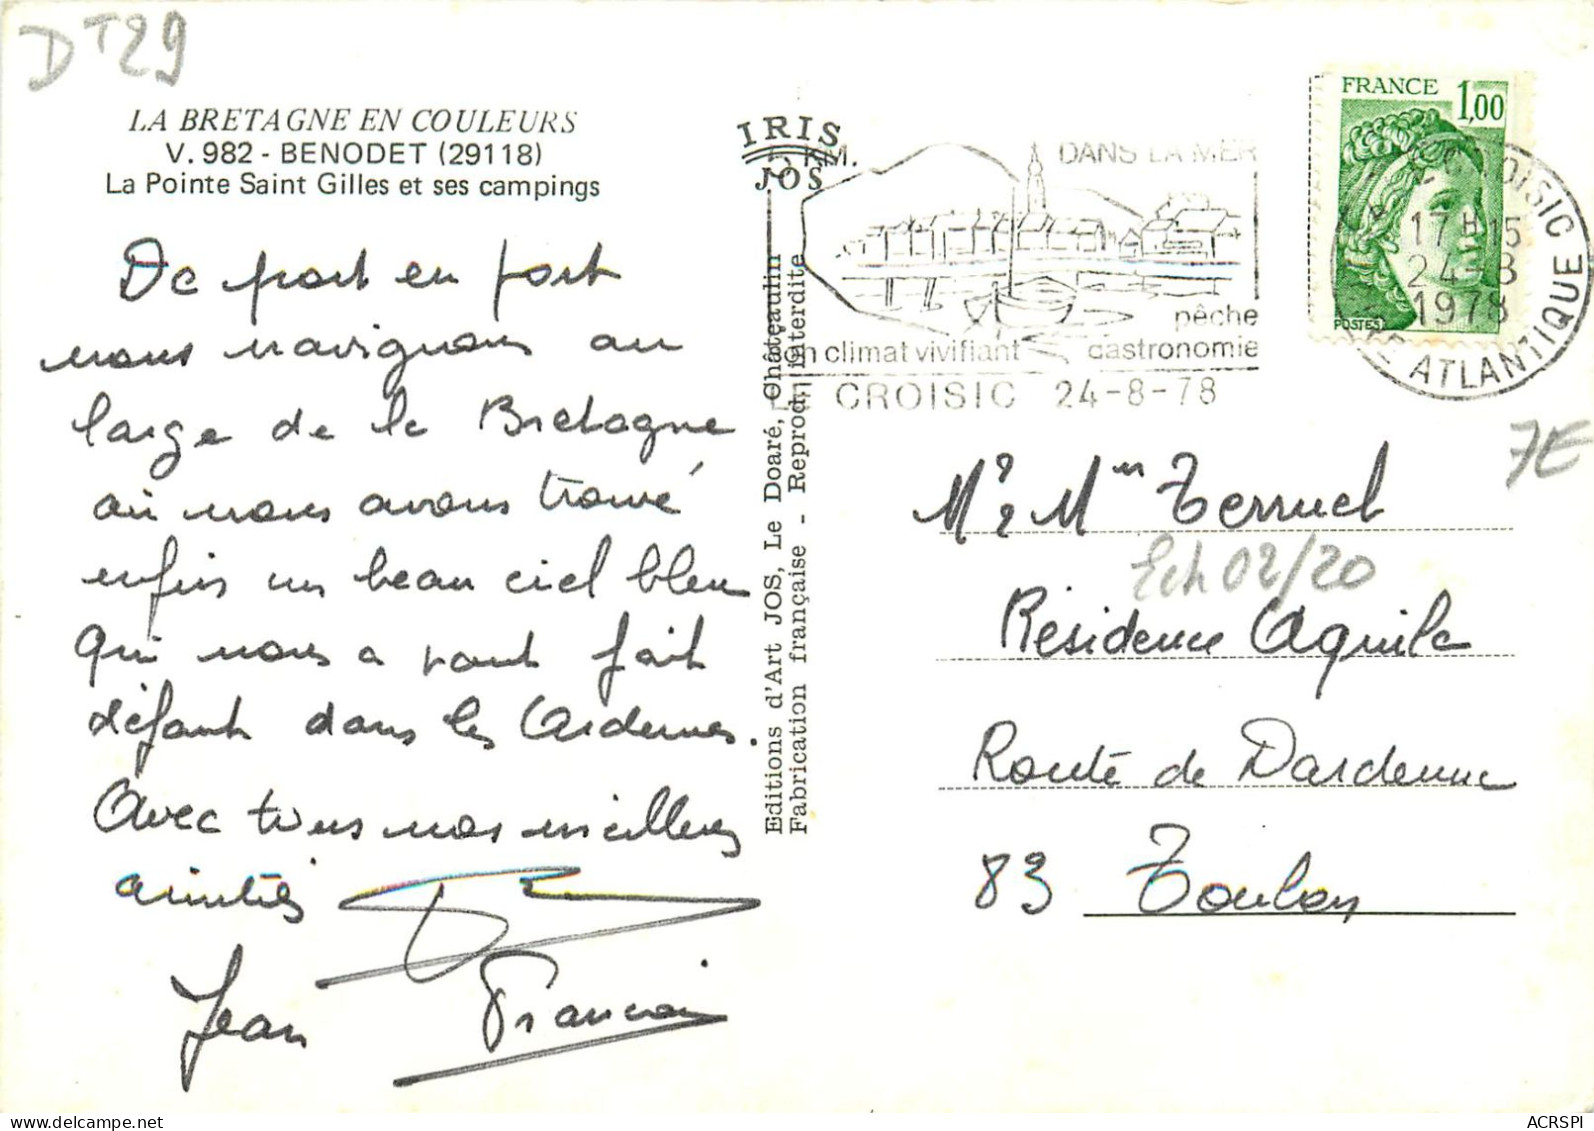 DT29
LA BRETAGNE EN COULEURS
V. 982 - BENODET (29118)
La Pointe Saint Gilles et ses campings
De port en port
nous navignons au
large de la Bretagne
où nous avons trouvé
enfin un beau ciel bleu
qui nous a tant fait
défaut dans les Ardennes.
Avec tous nos meilleures
amitiés
Jean François
IRIS
JOS
Editions d'Art JOS, Le Doaré, Châteaulin
Fabrication française - Reprod. interdite
5 KM. DANS LA MER
pêche
son climat vivifiant gastronomie
LE CROISIC 24-8-78
FRANCE 1,00
POSTES
LE CROISIC
17H15
24-8
1978
LOIRE ATLANTIQUE
7€
Mr & Mme Terruel
Ech 02/20
Résidence Aquila
Route de Dardenne
83 Toulon
ACRSPI